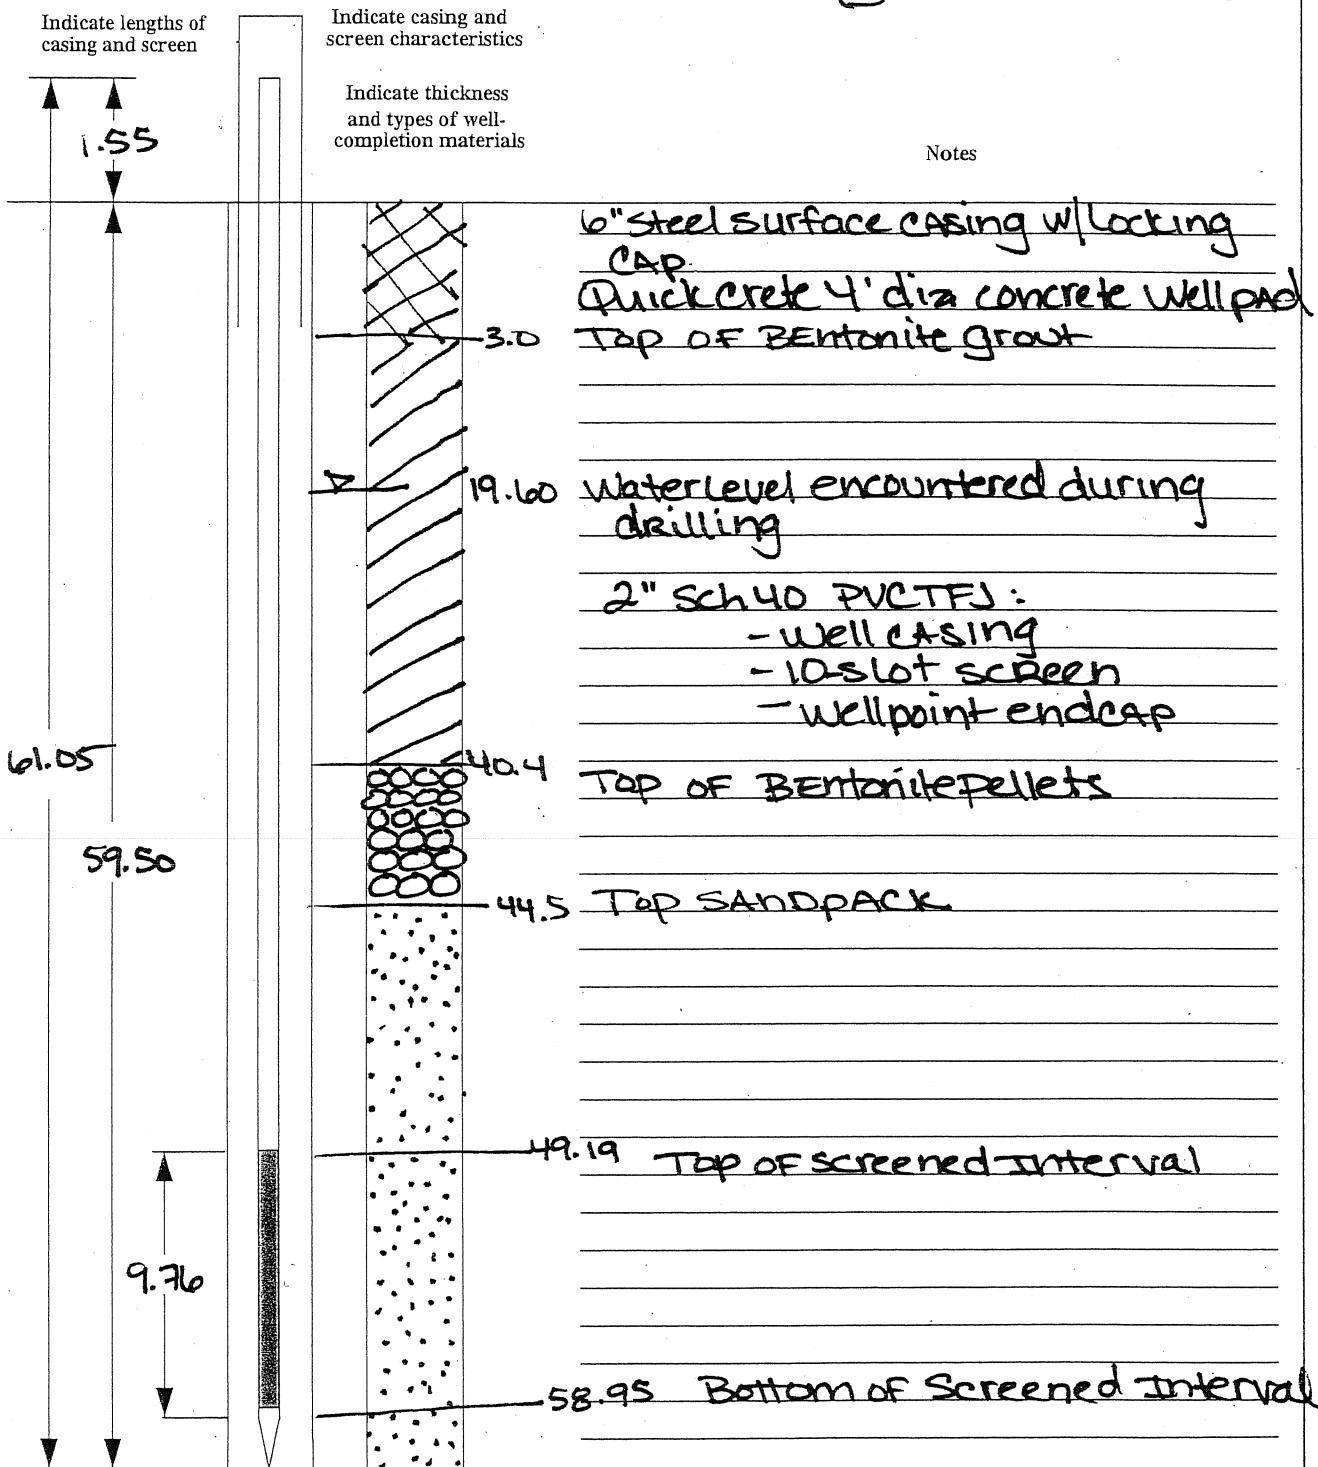 Indicate lengths of
casing and screen
Indicate casing and
screen characteristics
Indicate thickness
and types of well-
completion materials
Notes
1.55
6" Steel surface casing w/ Locking
CAP
Quickcrete 4' dia concrete Wellpad
3.0 Top OF BEntonite grout
19.60 Waterlevel encountered during
drilling
2" Sch 40 PVC TFJ:
- Well CAsing
- 10-slot screen
- Wellpoint endcAp
61.05
40.4 Top OF BEntonite pellets
59.50
44.5 Top SAnDpACK
49.19 Top OF screened Interval
9.76
58.95 Bottom of Screened Interval